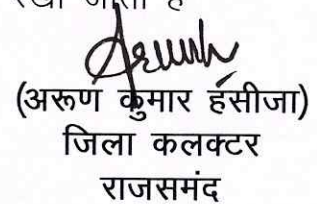 रखा जाता है
(अरूण कुमार हंसीजा)
जिला कलक्टर
राजसमंद